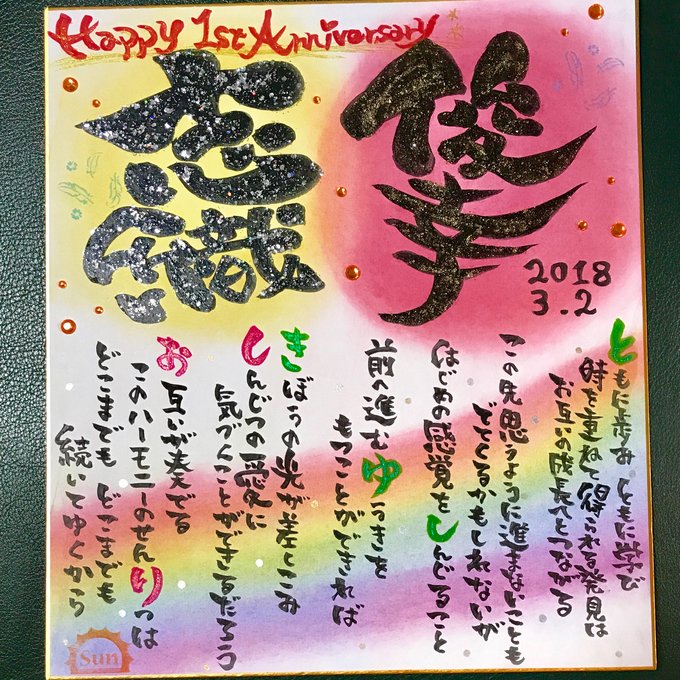 Happy 1st Anniversary
俊幸
志織
2018
3.2
ともに歩み ともに学び
時を重ねて得られる発見は
お互いの成長へとつながる
この先思うように進まないことも
でてくるかもしれないが
はじめの感覚をしんじること
前へ進むゆうきを
もつことができれば
きぼうの光が差しこみ
しんじつの愛に
気づくことができるだろう
お互いが奏でる
このハーモニーのせんりつは
どこまでも どこまでも
続いてゆくから
Sun